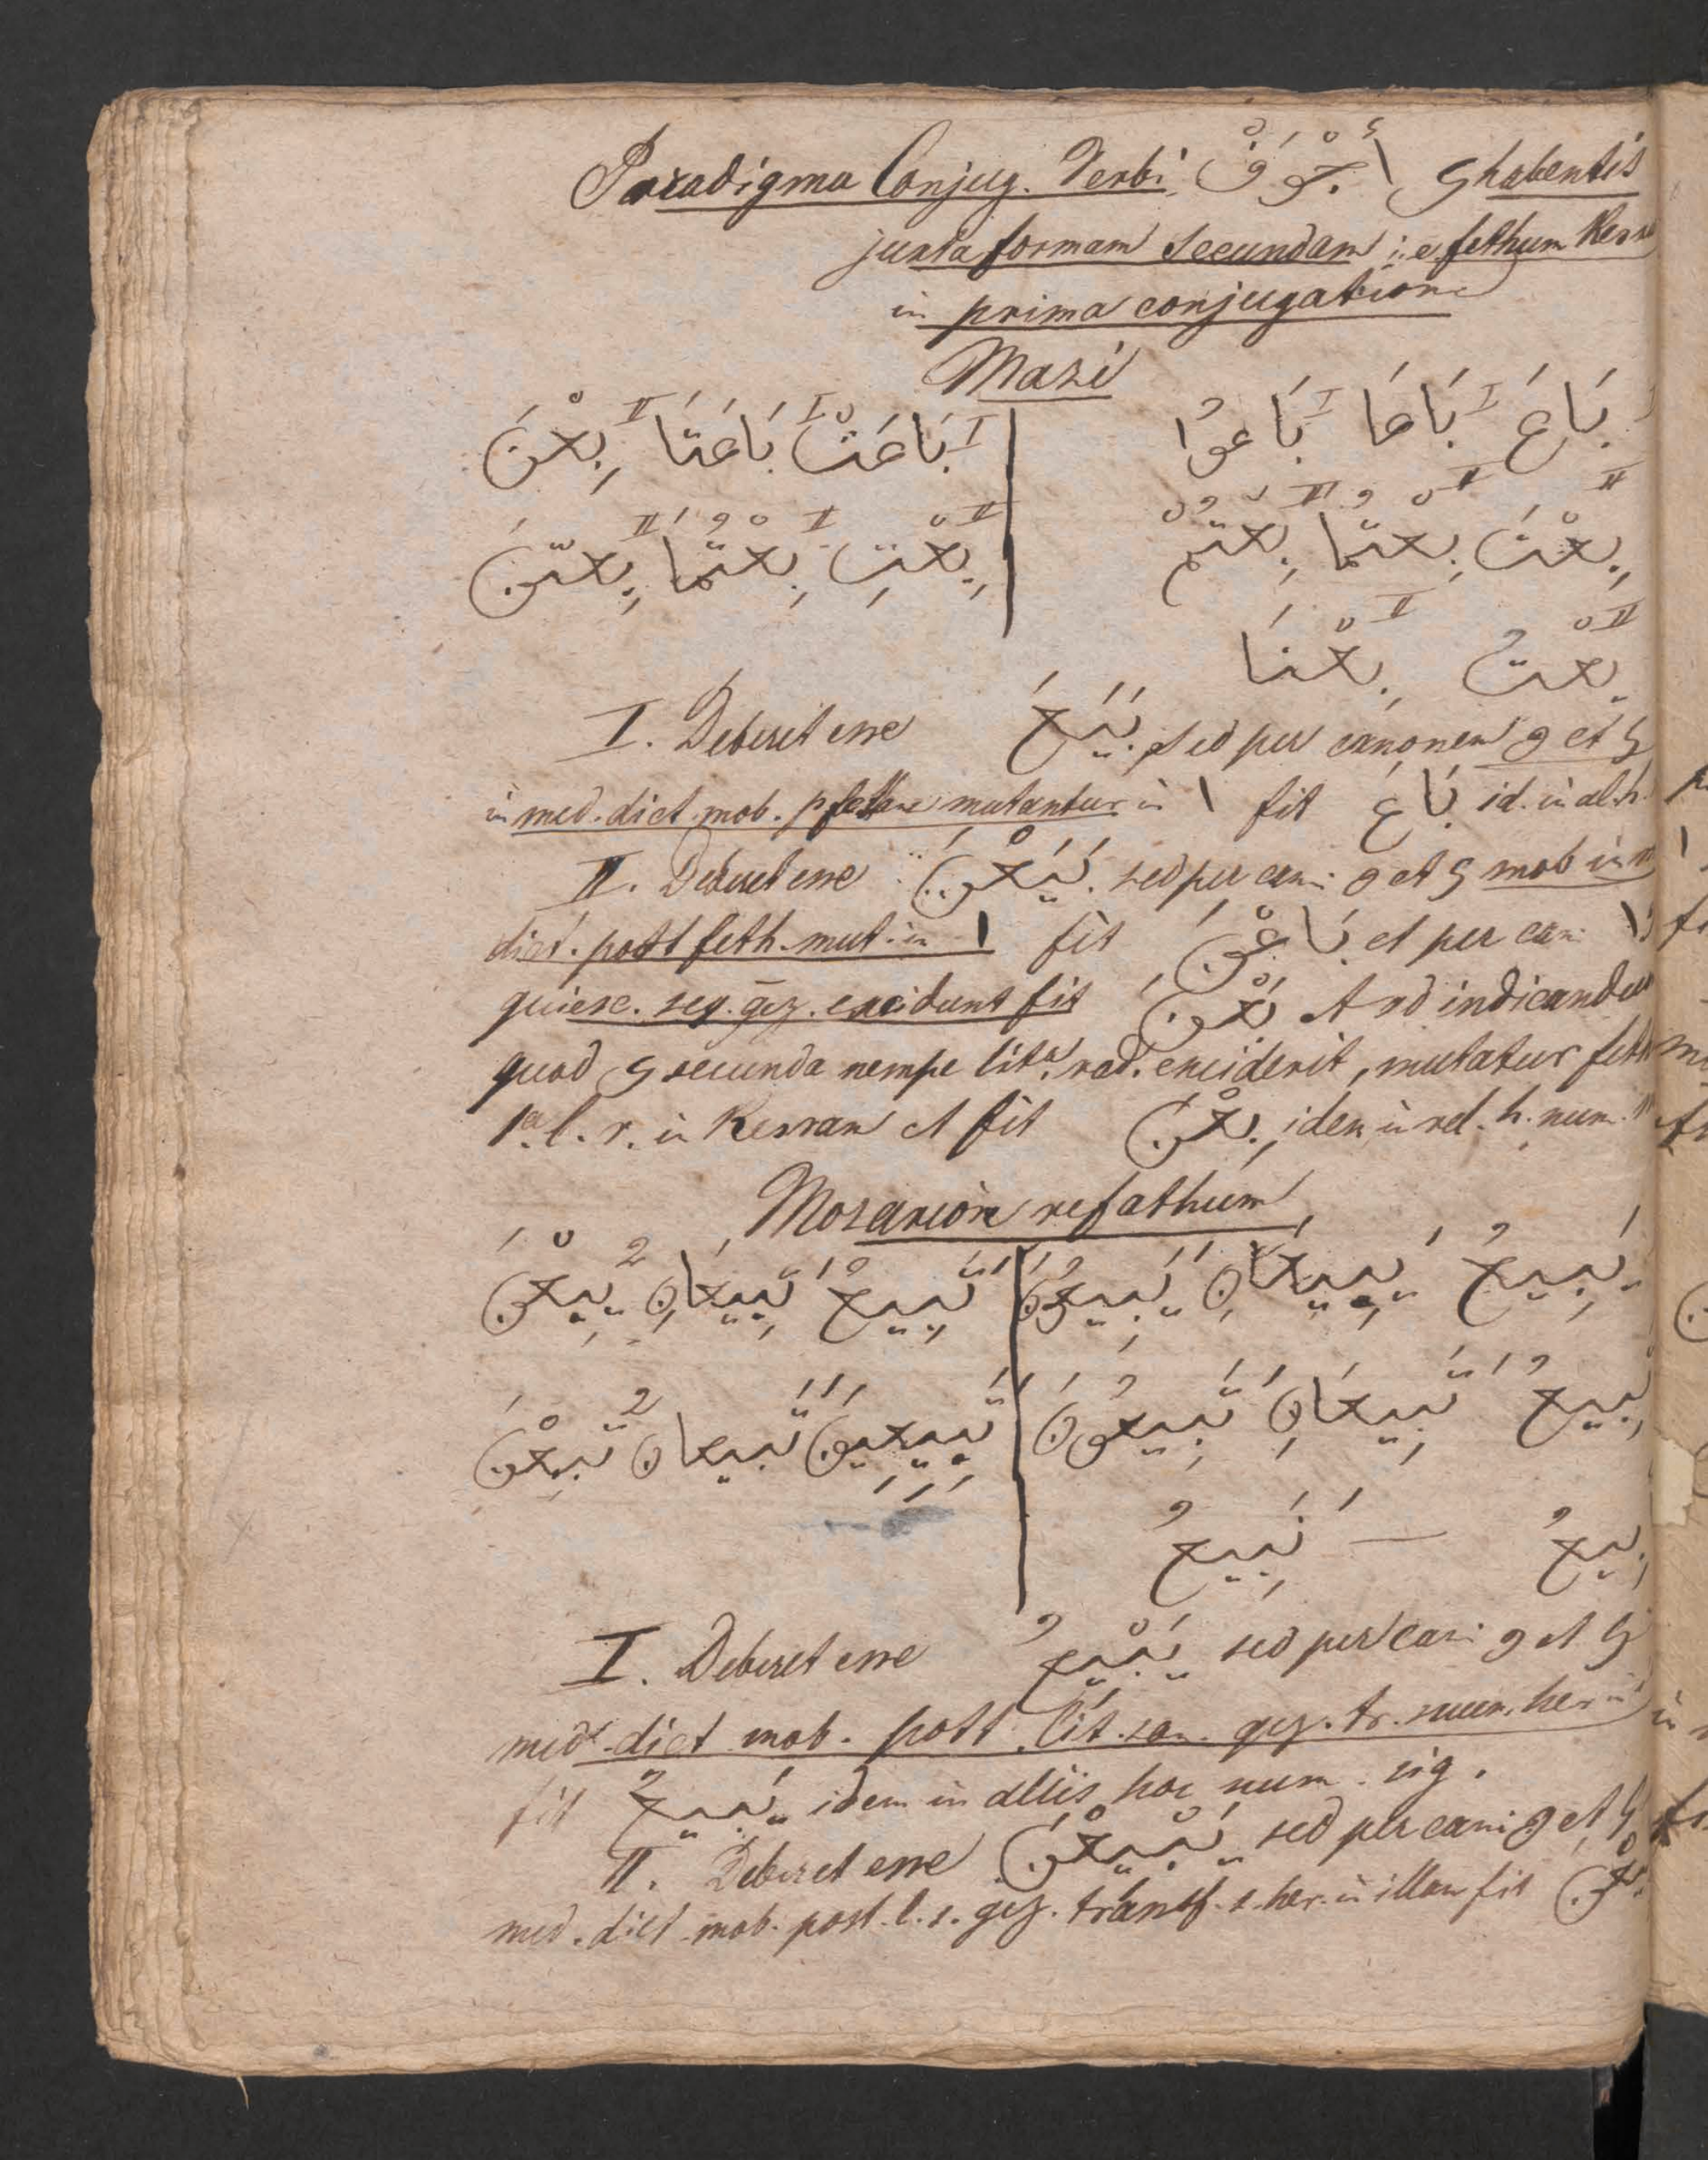 Paradigma Conjug. Verbi أَجْوَفْ ي habentis
juxta formam secundam i. e. fethum Kesre
in prima conjugatione
Mazi
بَاعَ I بَاعَا I بَاعُوا I بَاعَتْ I بَاعَتَا I بِعْنَ II
بِعْتَ II بِعْتُمَا II بِعْتُمْ II بِعْتِ II بِعْتُمَا II بِعْتُنَّ II
بِعْتُ II بِعْنَا II
I. Deberet esse بَيَعَ sed per canonem و et ي
in med. dict. mob. p. mutantur in ا fit بَاعَ id. in al. h.
II. Deberet esse بَيَعْنَ sed per can: و et ي mob in m
dict. post feth. mut. in ا fit بَاعْنَ et per can: ا
quiesc. seq. gez. excidunt fit بَعْنَ At ad indicandum
quod ي secunda nempe lit.ª rad. exciderit, mutatur feth
1ª. l. r. in Kesram et fit بِعْنَ idem in rel. h. num.
Mozarion refathum
يَبِيعُ يَبِيعَانِ يَبِيعُونَ تَبِيعُ تَبِيعَانِ يَبِعْنَ 2
تَبِيعُ تَبِيعَانِ تَبِيعُونَ تَبِيعِينَ تَبِيعَانِ تَبِعْنَ 2
بِيعُ — نَبِيعُ
I. Deberet esse يَبْيِعُ sed per can: و et ي
med. dict mob. post lit. san. gez. tr. suum. her in
fit يَبِيعُ idem in aliis hoc num. sig.
II. Deberet esse يَبْيِعْنَ sed per can: و et ي
med. dict mob. post. l. s. gez. transf. s. her. in illam fit يَبِعْنَ